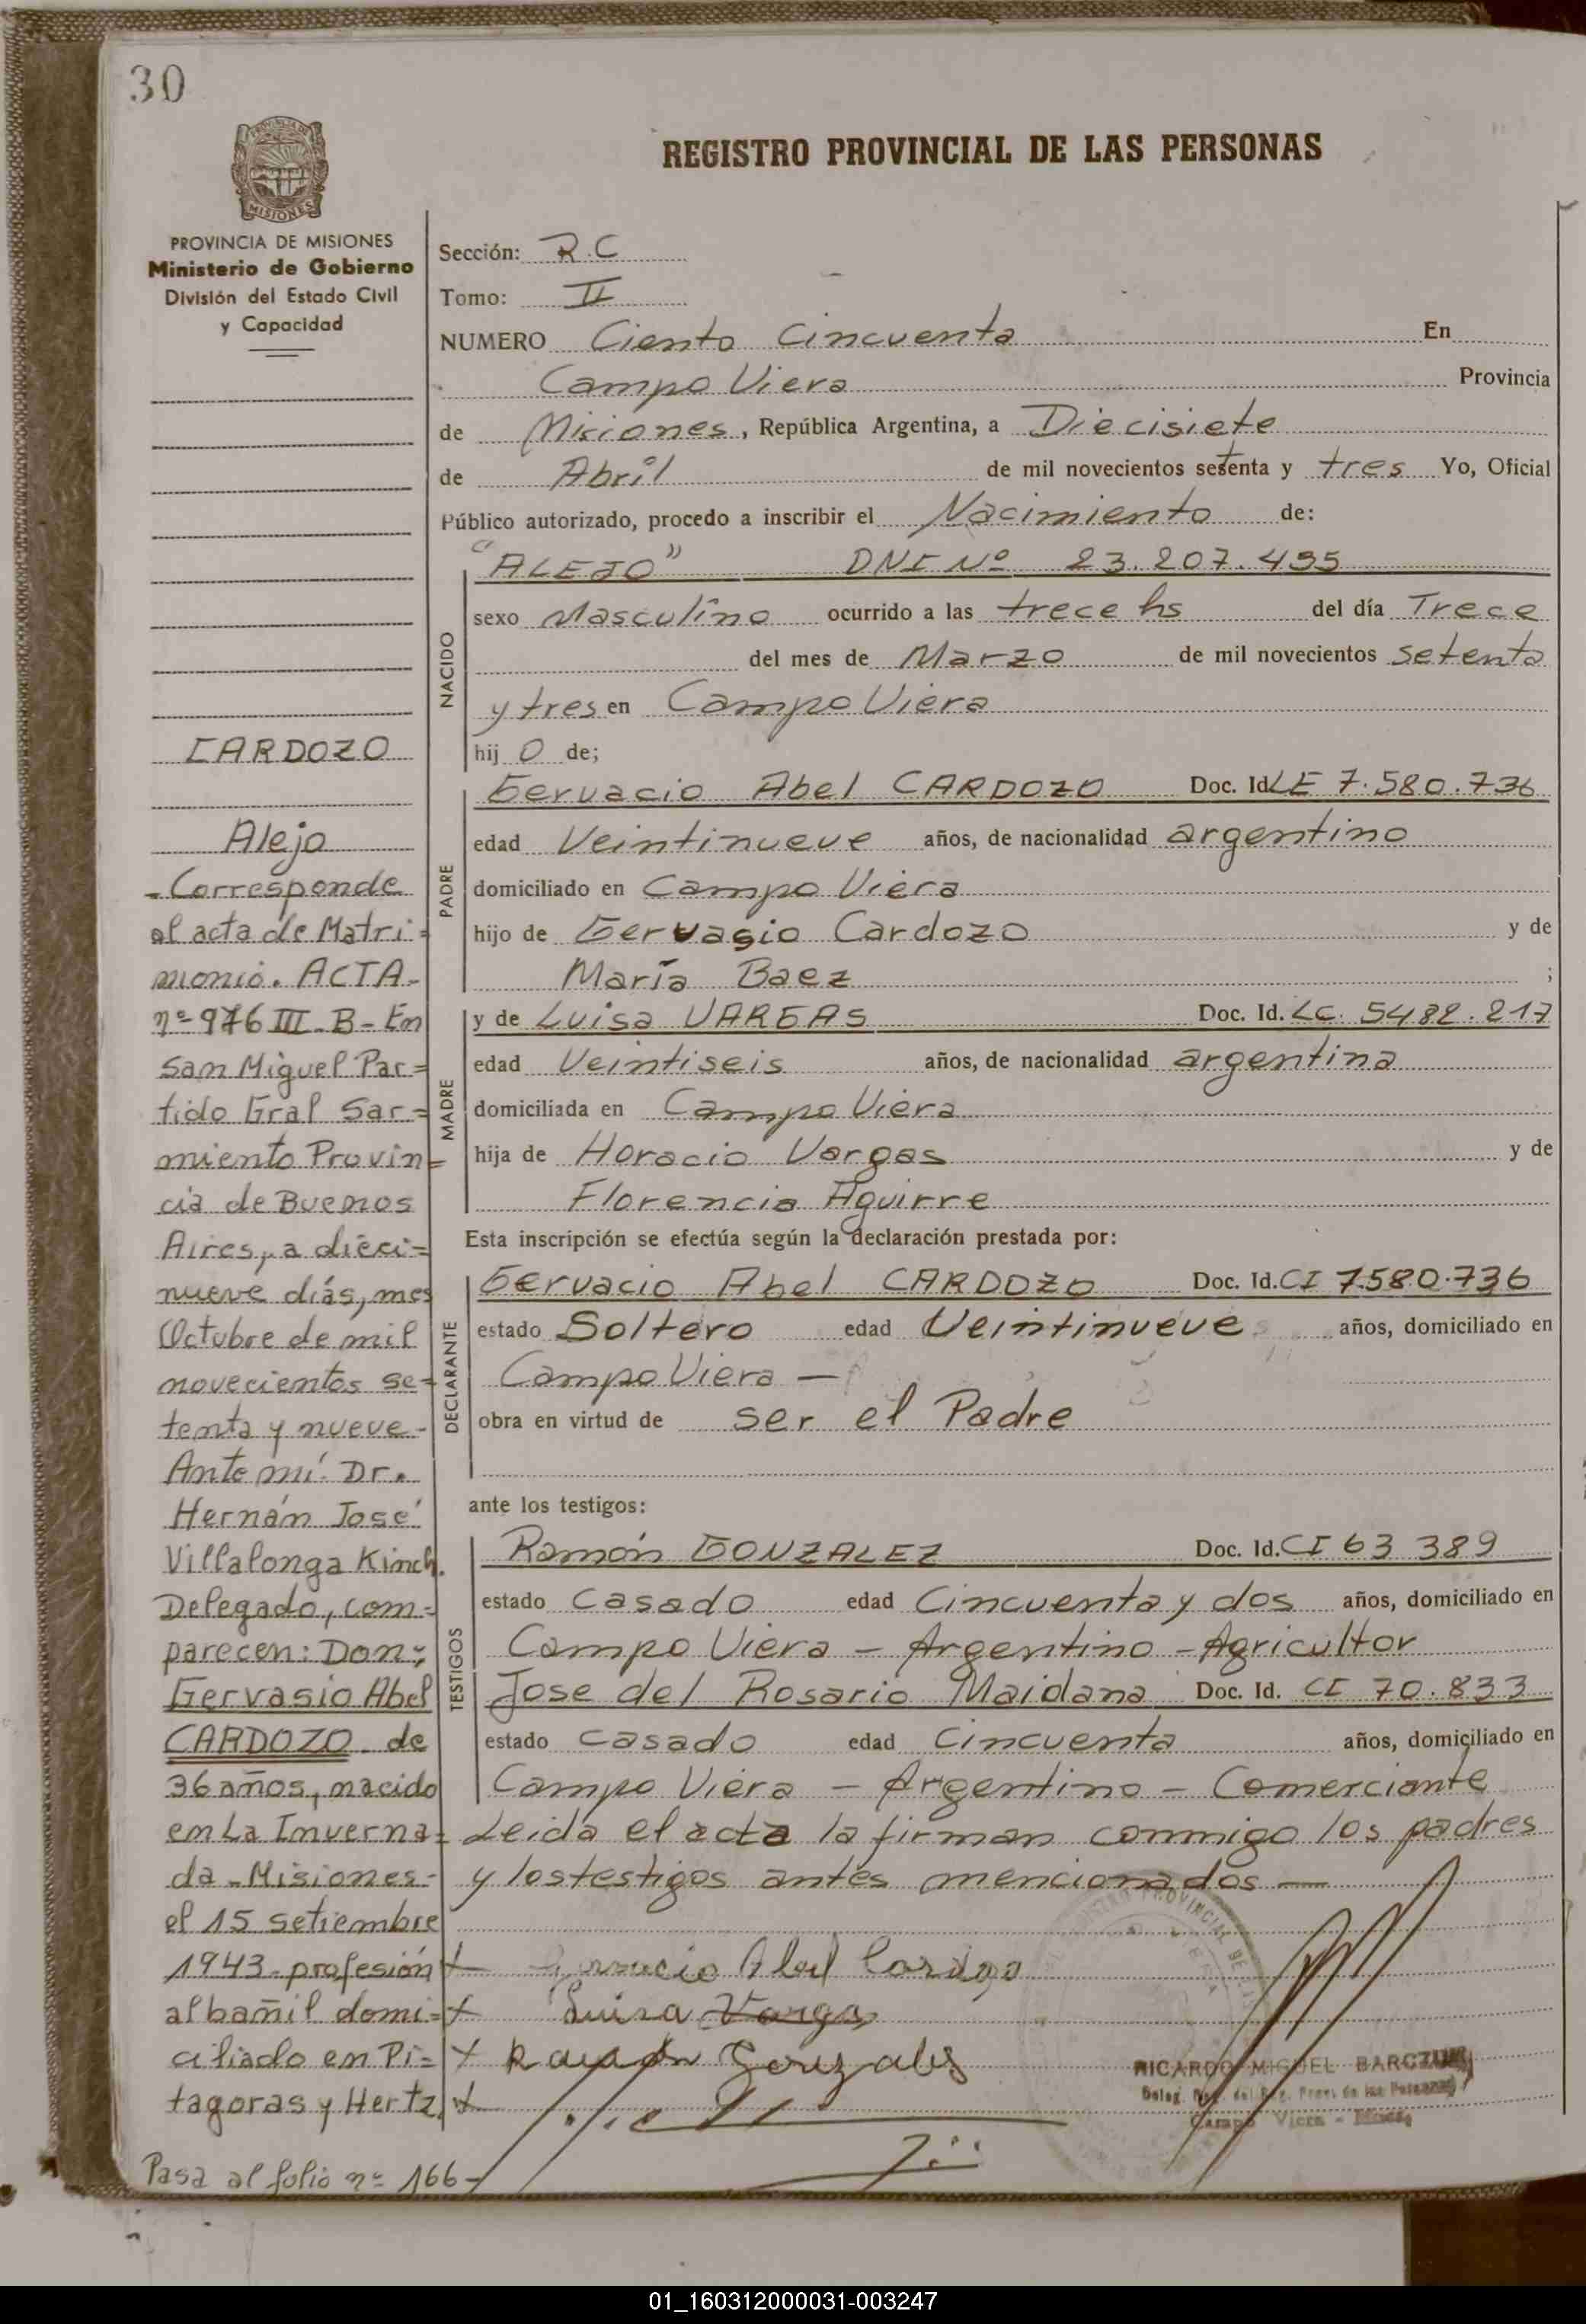 30
PROVINCIA DE
MISIONES
PROVINCIA DE MISIONES
Ministerio de Gobierno
División del Estado Civil
y Capacidad
CARDOZO
Alejo
- Corresponde
al acta de Matri=
monio. ACTA-
nº 976 III-B- En
San Miguel Par=
tido Gral Sar=
miento Provin=
cia de Buenos
Aires, a dieci=
nueve diás, mes
Octubre de mil
novecientos se=
tenta y nueve-
Ante mí Dr.
Hernán José
Villalonga Kinch.
Delegado, com=
parecen: Don;
Gervasio Abel
CARDOZO de
36 años, nacido
en La Inverna=
da - Misiones-
el 15 setiembre
1943 - profesión
albañil domi=
ciliado en Pi=
tagoras y Hertz
Pasa al folio nº 166-
REGISTRO PROVINCIAL DE LAS PERSONAS
Sección: R.C
Tomo: II
NUMERO Ciento Cincuenta En
Campo Viera Provincia
de Misiones, República Argentina, a Diecisiete
de Abril de mil novecientos setenta y tres Yo, Oficial
Público autorizado, procedo a inscribir el Nacimiento de:
NACIDO
"ALEJO" DNI Nº 23.207.495
sexo Masculino ocurrido a las trece hs del día Trece
del mes de Marzo de mil novecientos setenta
y tres en Campo Viera
hij o de;
PADRE
Gervacio Abel CARDOZO Doc. Id. LE 7.580.736
edad Veintinueve años, de nacionalidad argentino
domiciliado en Campo Viera
hijo de Gervasio Cardozo y de
María Baez ;
MADRE
y de Luisa VARGAS Doc. Id. LC. 5482.217
edad Veintiseis años, de nacionalidad argentina
domiciliada en Campo Viera
hija de Horacio Vargas y de
Florencia Aguirre
Esta inscripción se efectúa según la declaración prestada por:
DECLARANTE
Gervacio Abel CARDOZO Doc. Id. CI 7.580.736
estado Soltero edad Veintinueve años, domiciliado en
Campo Viera —
obra en virtud de ser el Padre
ante los testigos:
TESTIGOS
Ramón GONZALEZ Doc. Id. CI 63 389
estado Casado edad Cincuenta y dos años, domiciliado en
Campo Viera - Argentino - Agricultor
Jose del Rosario Maidana Doc. Id. CI 70.833
estado Casado edad Cincuenta años, domiciliado en
Campo Viera - Argentino - Comerciante
Leida el acta la firman conmigo los padres
y los testigos antes mencionados —
x Gervacio Abel Cardozo
x Luisa Vargas
x Ramón Gonzalez
x
RICARDO MIGUEL
Campo Viera - Mnes.
01_160312000031-003247